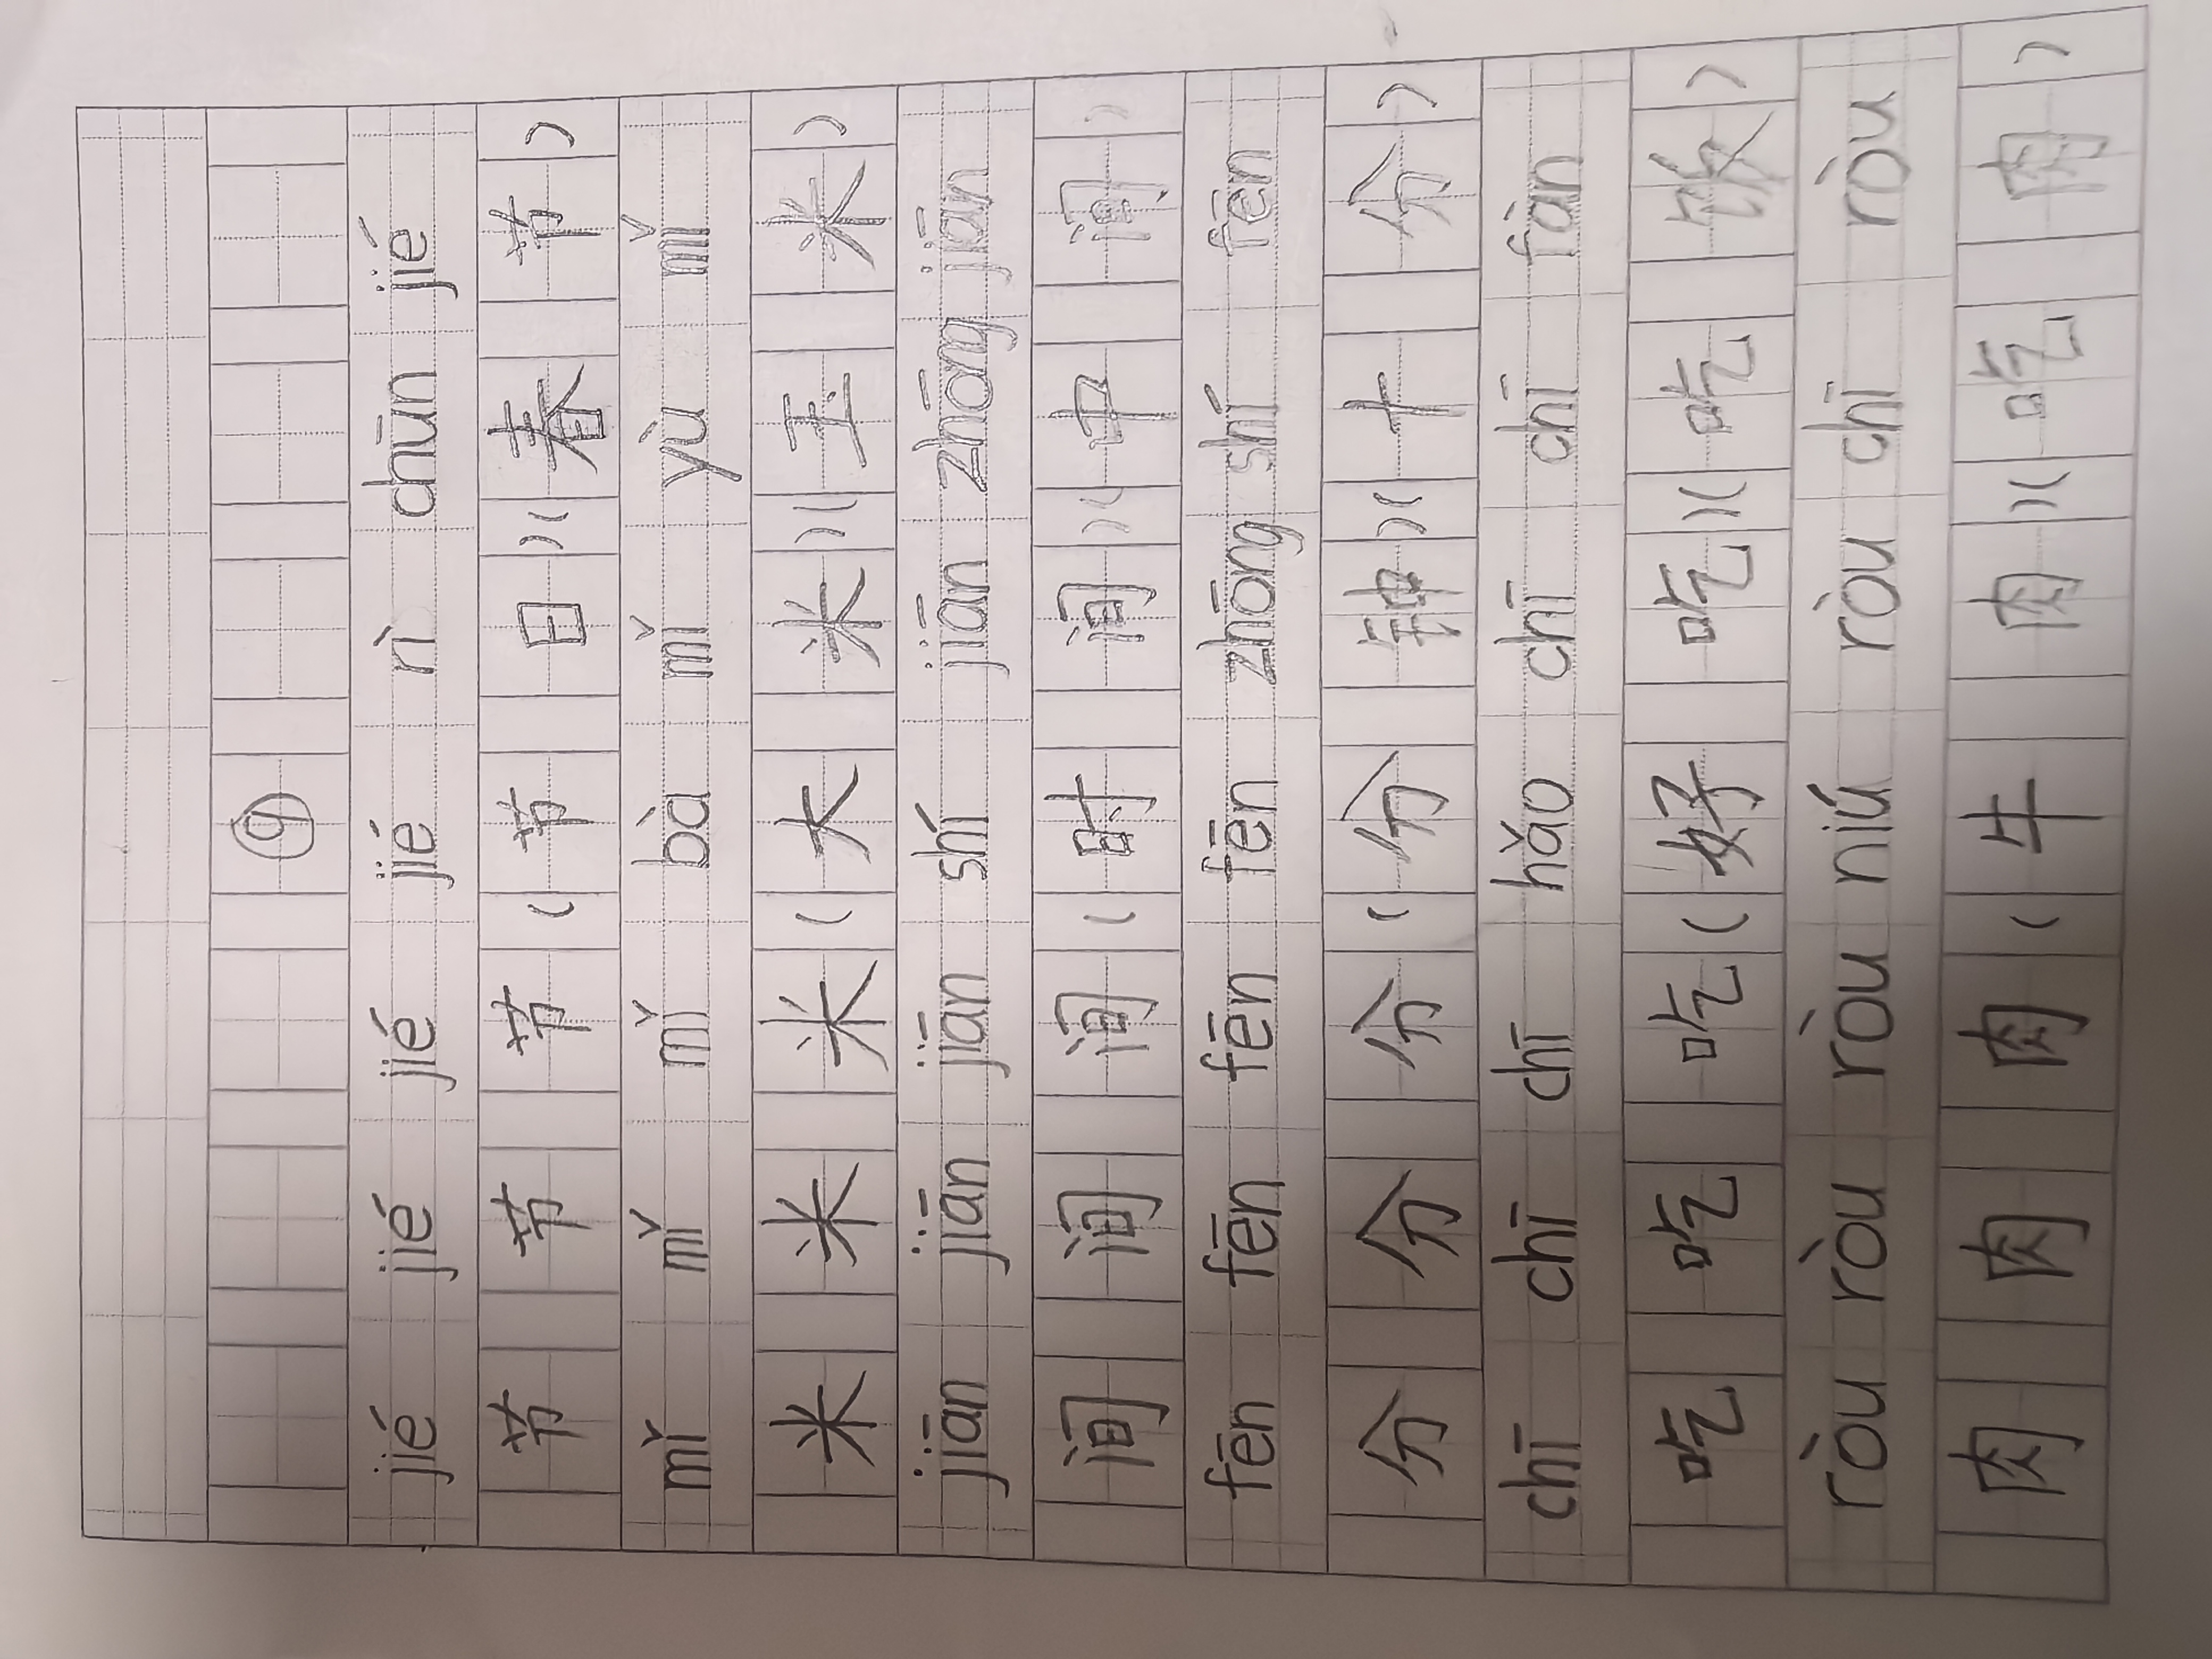 ⑨
jié jié jié jié rì chūn jié
节 节 节 (节 日)(春 节)
mǐ mǐ mǐ bà mǐ yù mǐ
米 米 米 (大 米)(玉 米)
jiān jiān jiān shí jiān zhōng jiān
间 间 间 (时 间)(中 间)
fēn fēn fēn fēn zhōng shí fēn
分 分 分 (分 钟)(十 分)
chī chī chī hǎo chī chī fàn
吃 吃 吃 (好 吃)(吃 饭)
ròu ròu ròu niú ròu chī ròu
肉 肉 肉 (牛 肉)(吃 肉)